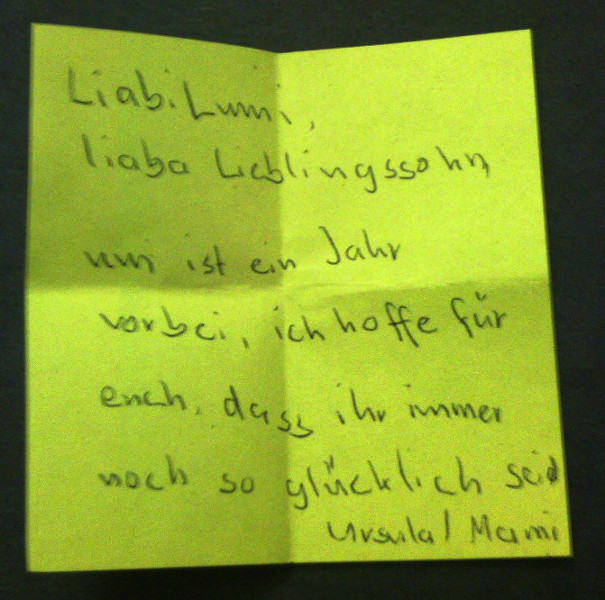 Liabi Lumi,
liaba Lieblingssohn,
nun ist ein Jahr
vorbei, ich hoffe für
euch, dass ihr immer
noch so glücklich seid
Ursula / Mami